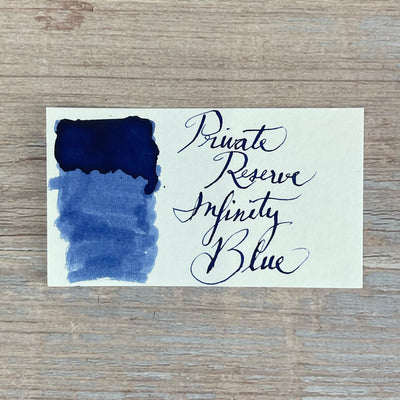 Private
Reserve
Infinity
Blue